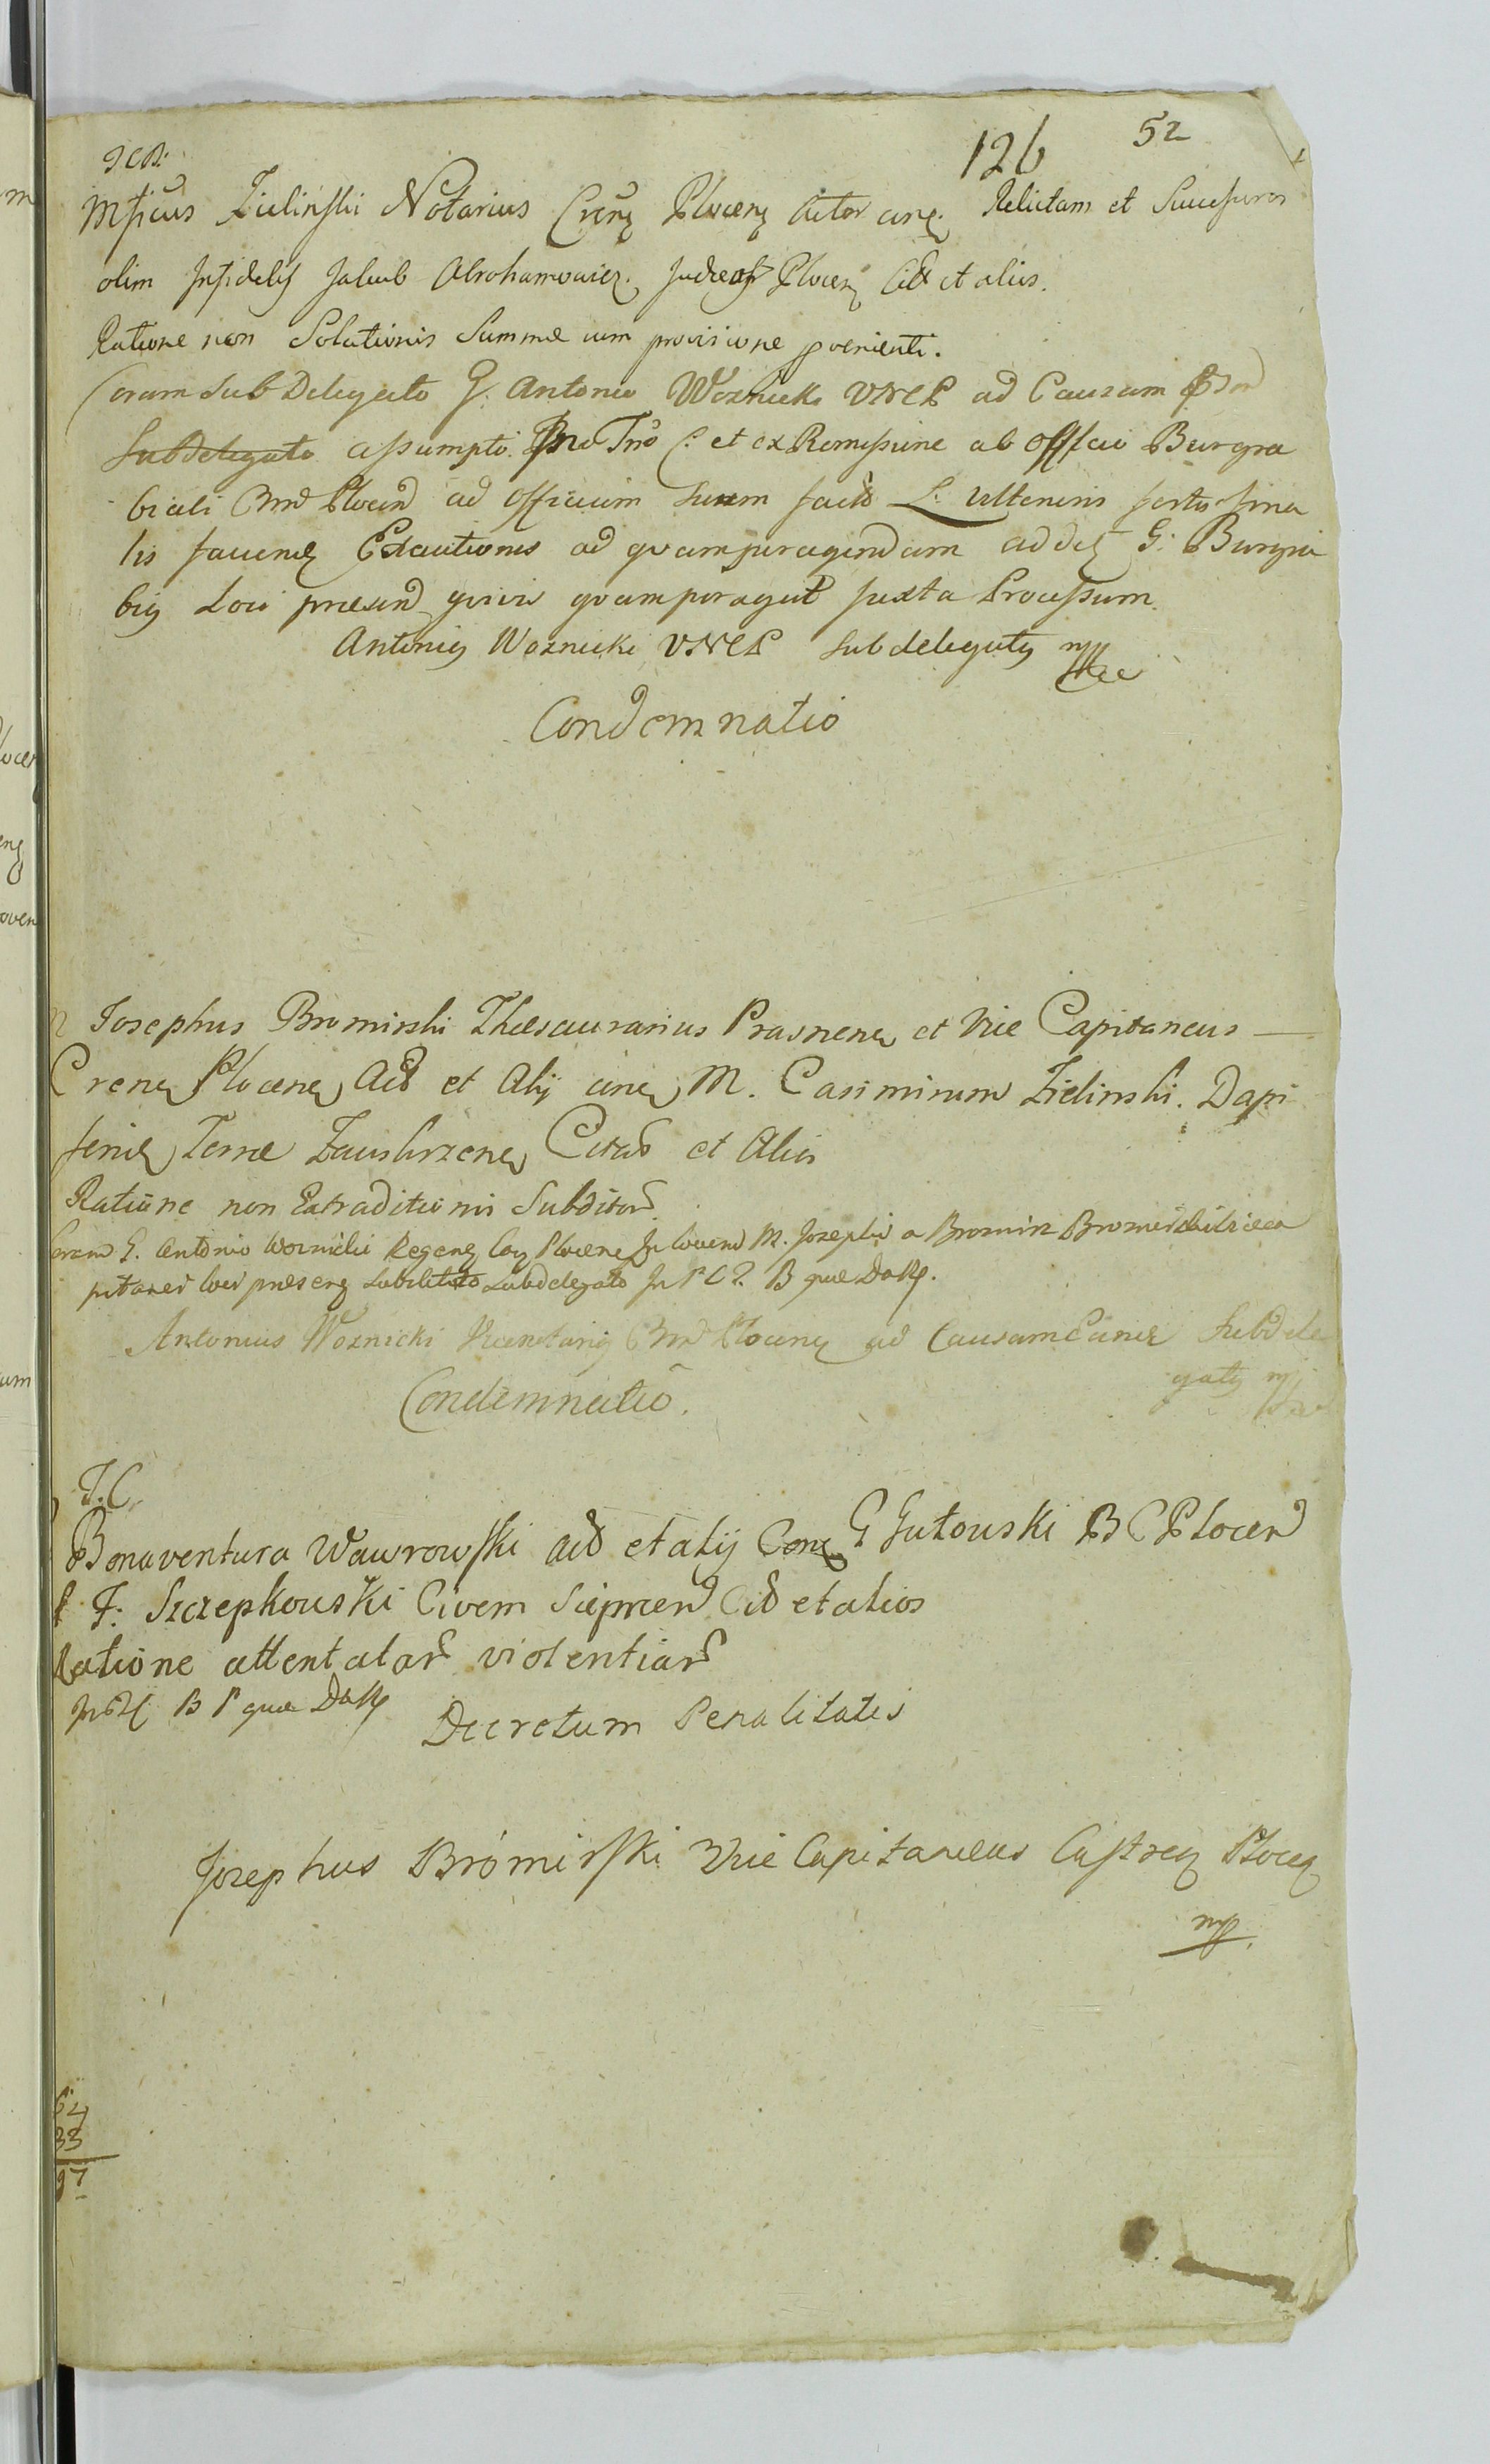 126 52
JCR.
Mficus Zielinski Notarius Crens Plocens Actor cine. Relictam et Successores
olim Infidelis Jakub Abrohamowicz. Judaeos Plocens Cit et alios.
Ratione non Solutionis Summae cum provisione provenienti.
Coram Sub Delegato G. Antonio Woznicki VNCP ad Causam
Subdelegato assumpto C. et ex Remissione ab Officio Burgra
biali Plocen ad Officium Suum facto L. Ulterioris fortis fina
lis Executionis ad quam peragendam addit G: Burgra
big Loci praesen quam peragent juxta Processum.
Antonius Woznicki VNCP Subdelegatus mpp
Condemnatio
Josephus Bromirski Thesaurarius Prasnens et Vice Capitaneus
Crens Plocens Act et Alij cine M. Casimirum Zielinski. Dapi
ferum Terrae Zauskrzens Citat et Alios
Ratione non Extraditionis Subditor.
Coram G. Antonio Woznicki Regens Plocens In locum M. Josephi a Bromirz Bromirski Viceca
pitanei loci praesens Substituto Subdelegato In P C P. B quae Datt.
Antonius Woznicki Vicenotarius Plocens ad Causam Subdele
gatus mp
Condemnatio.
T.C.
Bonaventura Wawrowski act et alij Cone G Gutouski B C Plocen
F. Szczepkouski Civem Sieprcen Cit et alios
Ratione attentatar violentiar
B P quae Datt Decretum Penalitatis
Josephus Bromirski Vice Capitaneus Castren Plocen
mp.
64
33
97